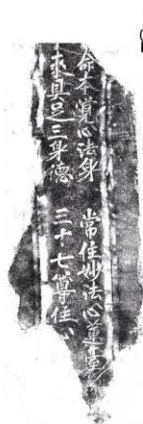 命本覺心法身　常住妙法心蓮臺
來具足三身德　三十七尊住心